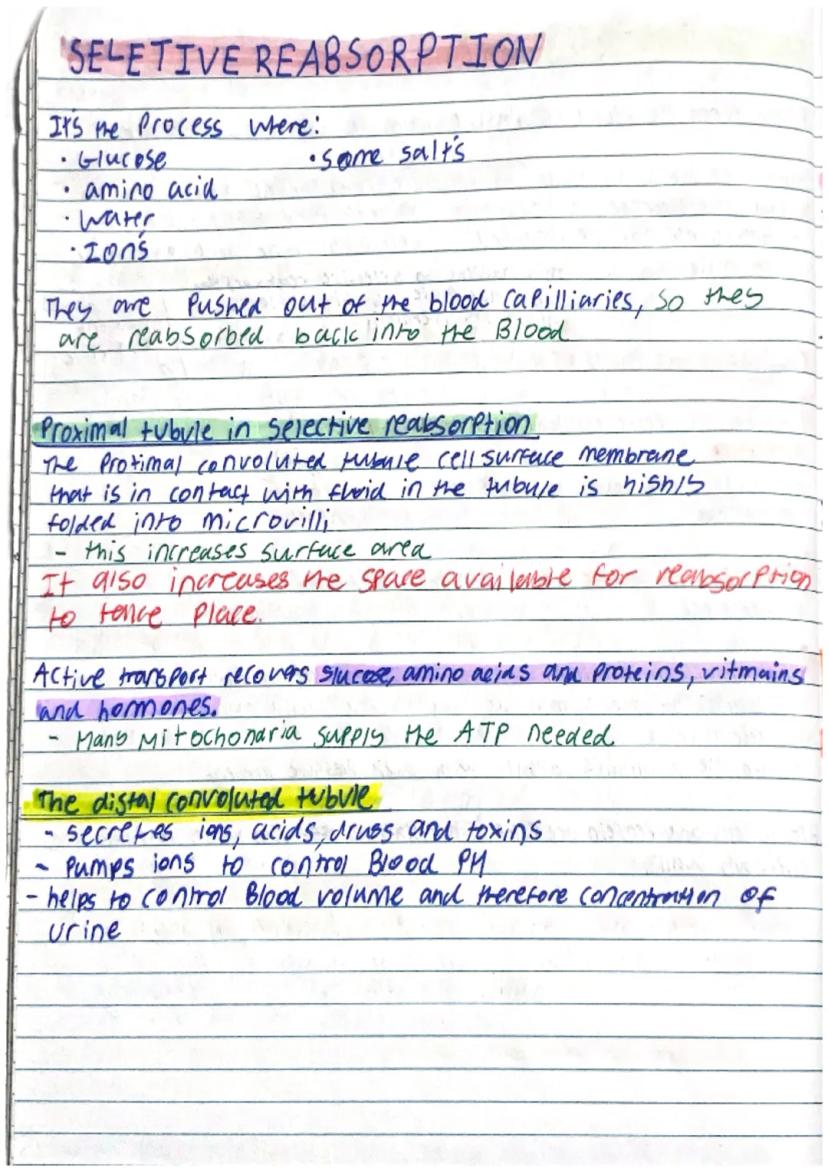 SELETIVE REABSORPTION
It's the Process where:
• Glucose • some salt's
• amino acid
• water
• Ion's
They are Pushed out of the blood capilliaries, so they
are reabsorbed back into the Blood
Proximal tubule in selective reabsorption
The Protimal convoluted tubule cell surface membrane
that is in contact with fluid in the tubule is highly
folded into microvilli
- this increases surface area
It also increases the space available for reabsorption
to take Place.
Active transport recovers glucose, amino acids and proteins, vitmains
and hormones.
- Many Mitochondria supply the ATP needed
The distal convoluted tubule
- secretes ions, acids, drugs and toxins
- Pumps ions to control Blood PH
- helps to control Blood volume and therefore concentration of
urine